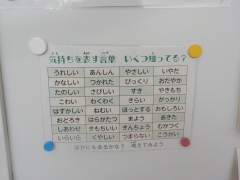 気持ちを表す言葉 いくつ知ってる？
うれしい あんしん やさしい いやだ
かなしい つかれた びっくり おだやか
たのしい さびしい すき やきもち
こわい わくわく きらい がっかり
はずかしい ねむい ほっとする おもしろい
おどろき はらがたつ まよう あきた
しあわせ きもちいい きんちょう むかつく
いらいら くやしい つまらない こうかい
自分にもあるかな？ 考えてみよう